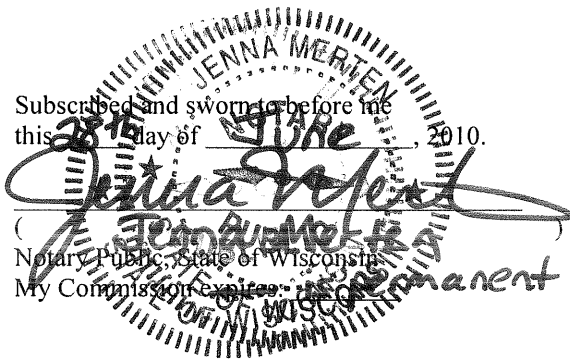 JENNA MERTEN
NOTARY
Subscribed and sworn to before me
this 28th day of June, 2010.
Jenna Merten
(Jenna Merten)
Notary Public, State of Wisconsin
My Commission expires: permanent
OF WISCONSIN